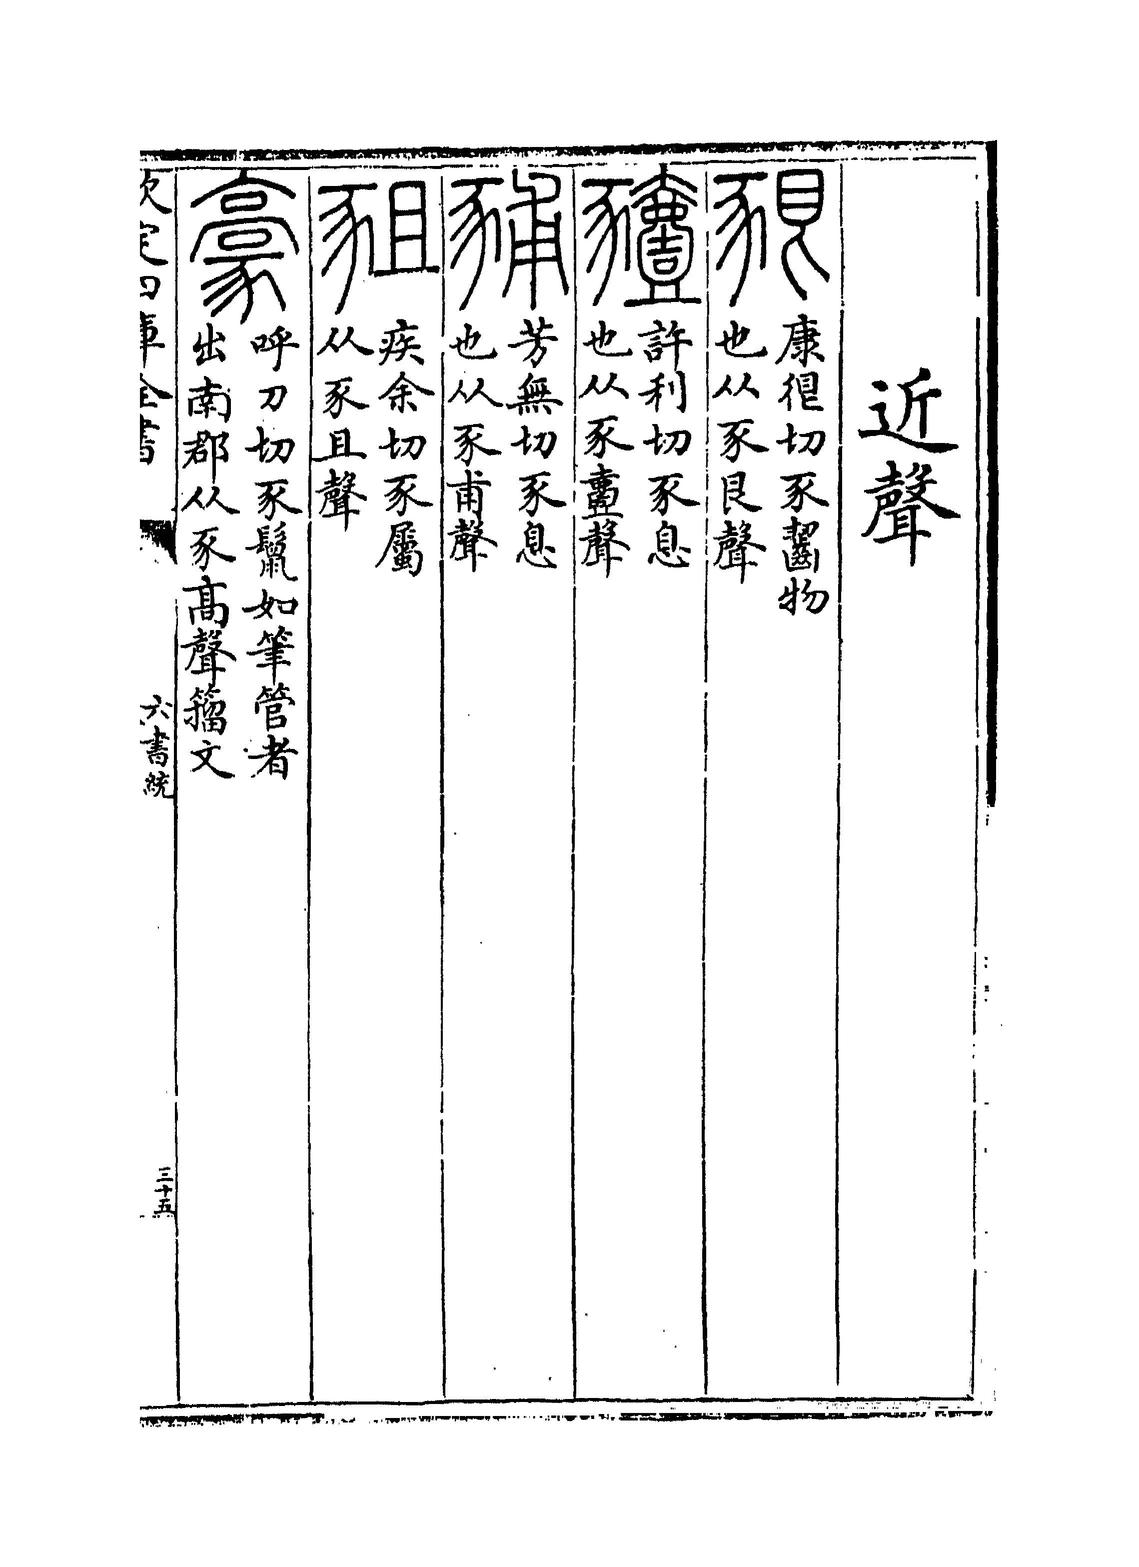 近聲
豤
康很切豕齧物
也从豕艮聲
豷
許利切豕息
也从豕壹聲
豧
芳無切豕息
也从豕甫聲
豠
疾余切豕屬
从豕且聲
豪
呼刀切豕鬛如筆管者
出南郡从豕髙聲籀文
欽定四庫全書
六書統
三十五